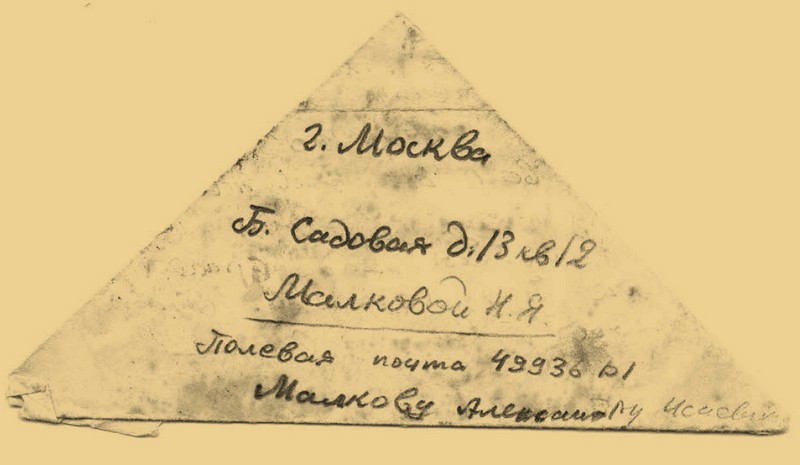 г. Москва
Б. Садовая д. 13 кв 12
Малковой Н. Я.
Полевая почта 49936
Малкову Александру Исаевич